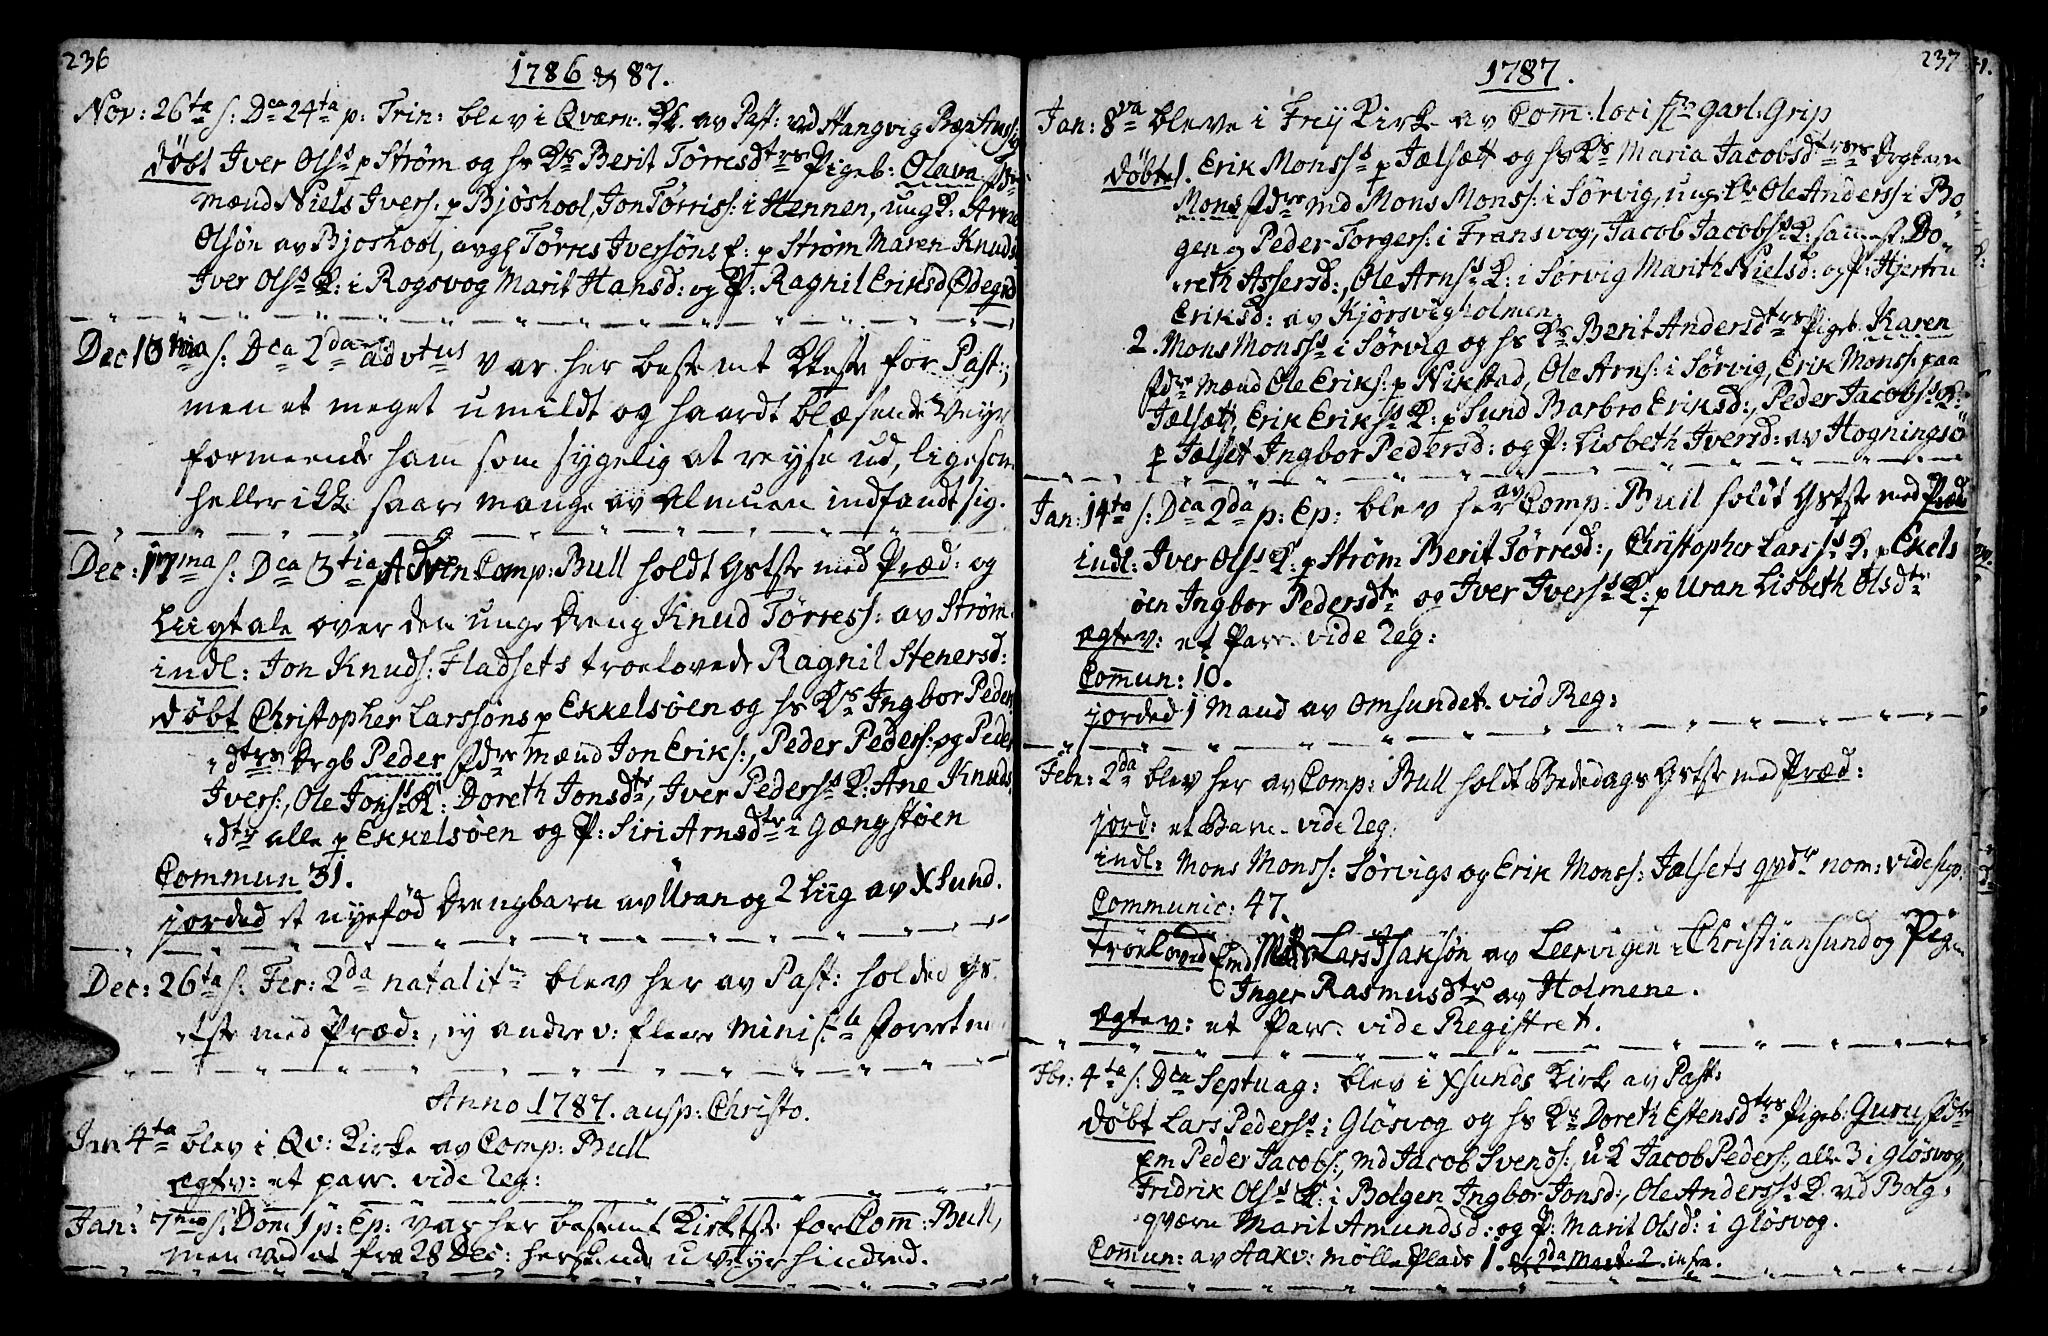 236
1786 & 87.
Nov: 26ta s: Dca 24ta p: Trin: blev i Qværn: K. av Past: ved Stangvig
døbt Iver Olss p Strøm og hs Ks Berit Tørresdtrs Pigeb: Olava
mænd Niels Ivers: p Bjøshool, Jon Tørriss: i Hennen, ung K: Arne
Olsøn av Bjøshool, avg: Tørres Iversøns E: p Strøm Maren Knuds
Iver Olss K: i Rogsvog Marit Hansd: og P: Ragnil Eriksd Ødegrd
Dec 10ma s: Dca 2da advtus var her bestemt Kteste for Past:,
men et meget umildt og haardt blæsende Veyr
formeente ham som sygelig at reyse ud, ligesom
heller ikke saare mange av Almuen indfandt sig.
Dec: 17ma s: Dca 3tia Adven Comp: Bull holdt Gstste med Præd: og
Liigtale over den unge Dreng Knud Tørress: av Strøm
indl: Jon Knuds: Fladsets troelovede Ragnil Stenersd:
døbt Christopher Larssøns p Ekkelsøen og hs Ks Ingbor Peders
dtrs Drgb Peder Fdre Mænd Jon Eriks:, Peder Peders: og Peder
Ivers:, Ole Jonss K: Doreth Jonsdtr, Iver Pederss K: Ane Knuds
dtr alle p Ekkelsøen og P: Siri Arnsdtr i Gængstøen
Commun 31.
jorded et nyefød Drengbarn av Uran og 2 Liig av XSund.
Dec: 26ta s: Fer: 2da natalit blev her av Past: holded Gs
tste med Præd:, ey andre v: fleere minist: Forretn
Anno 1787. ausp: Christo.
Jan 4ta blev i Qv: Kirke av Comp: Bull
ægtv: et parr. vide Reg:
Jan: 7ma s: Dom 1 p: Ep: var her bestemt Kirktste for Comp: Bull,
men ved et fra 28 Dec: herskende uveyr hindred.
237
1787.
Jan: 8va bleve i Freij Kirke av Com: loci Hr Garl: Grip
døbte 1. Erik Monss p Jælsætt og hs Ks Maria Jacobsdtrs Drgbarn
Mons Fdre md Mons Monss: i Sørvig, ung K Ole Anderss: i Bo
gen og Peder Torgers: i Fransvog, Jacob Jacobss K: sammest: Do
reth Assersd:, Ole Arnss K: i Sørvig Marith Nielsd: og P: Hjertru
Eriksd: av Kjørsvigholmen
2. Mons Monss i Sørvig og hs Ks Berit Andersdtrs Pigeb. Karen
Fdre mænd Ole Eriks: p Nikstad, Ole Arns: i Sørvig, Erik Monss: paa
Jælsætt, Erik Erikss K: p Sund Barbro Eriksd:, Peder Jacobss K:
p Jælset Ingbor Pedersd: og P: Lisbeth Iversd: av Hogningsø
Jan: 14ta s: Dca 2da p: Ep: blev her av Comp: Bull holdt Gstste med Præd
indl: Iver Olss K: p Strøm Berit Tørresd:, Christopher Larss K: p Ekels
øen Ingbor Pedersdtr og Iver Iverss K: p Uran Lisbeth Olsdtr
ægtev: et Parr. vide Reg:
Commun: 10.
jorded 1 Mand av Omsundet. vid Reg:
Febr: 2da blev her av Comp: Bull holdt Bededags Gstste med Præd:
jord: et Barn. vide Reg:
indl: Mons Monss: Sørvigs og Erik Monss: Jælsets qvdr nom: vide sup:
Communic: 47.
troloved Em Lars Isaksøn av Leervigen i Christiansund og Pigen
Inger Rasmusdtr av Holmene.
Ægtev: et Parr. vide Registret.
Fbr: 4ta s: Dca Septuag: blev i Xsunds Kirke av Past:
døbt Lars Pederss i Gløsvog og hs Ks Doreth Estensdtrs Pigeb: Guru Fdre
Em Peder Jacobs:, md Jacob Svends:, u K Jacob Peders:, alle 3 i Gløsvog,
Fridrik Olss K: i Bolgen Ingbor Jonsd:, Ole Anderss K. vd Bolg
qværn Marit Amundsd: og P: Marit Olsd: i Gløsvog.
Commun: av Aakv: mølle Plads 1. & 2da Mart. 2. infra.